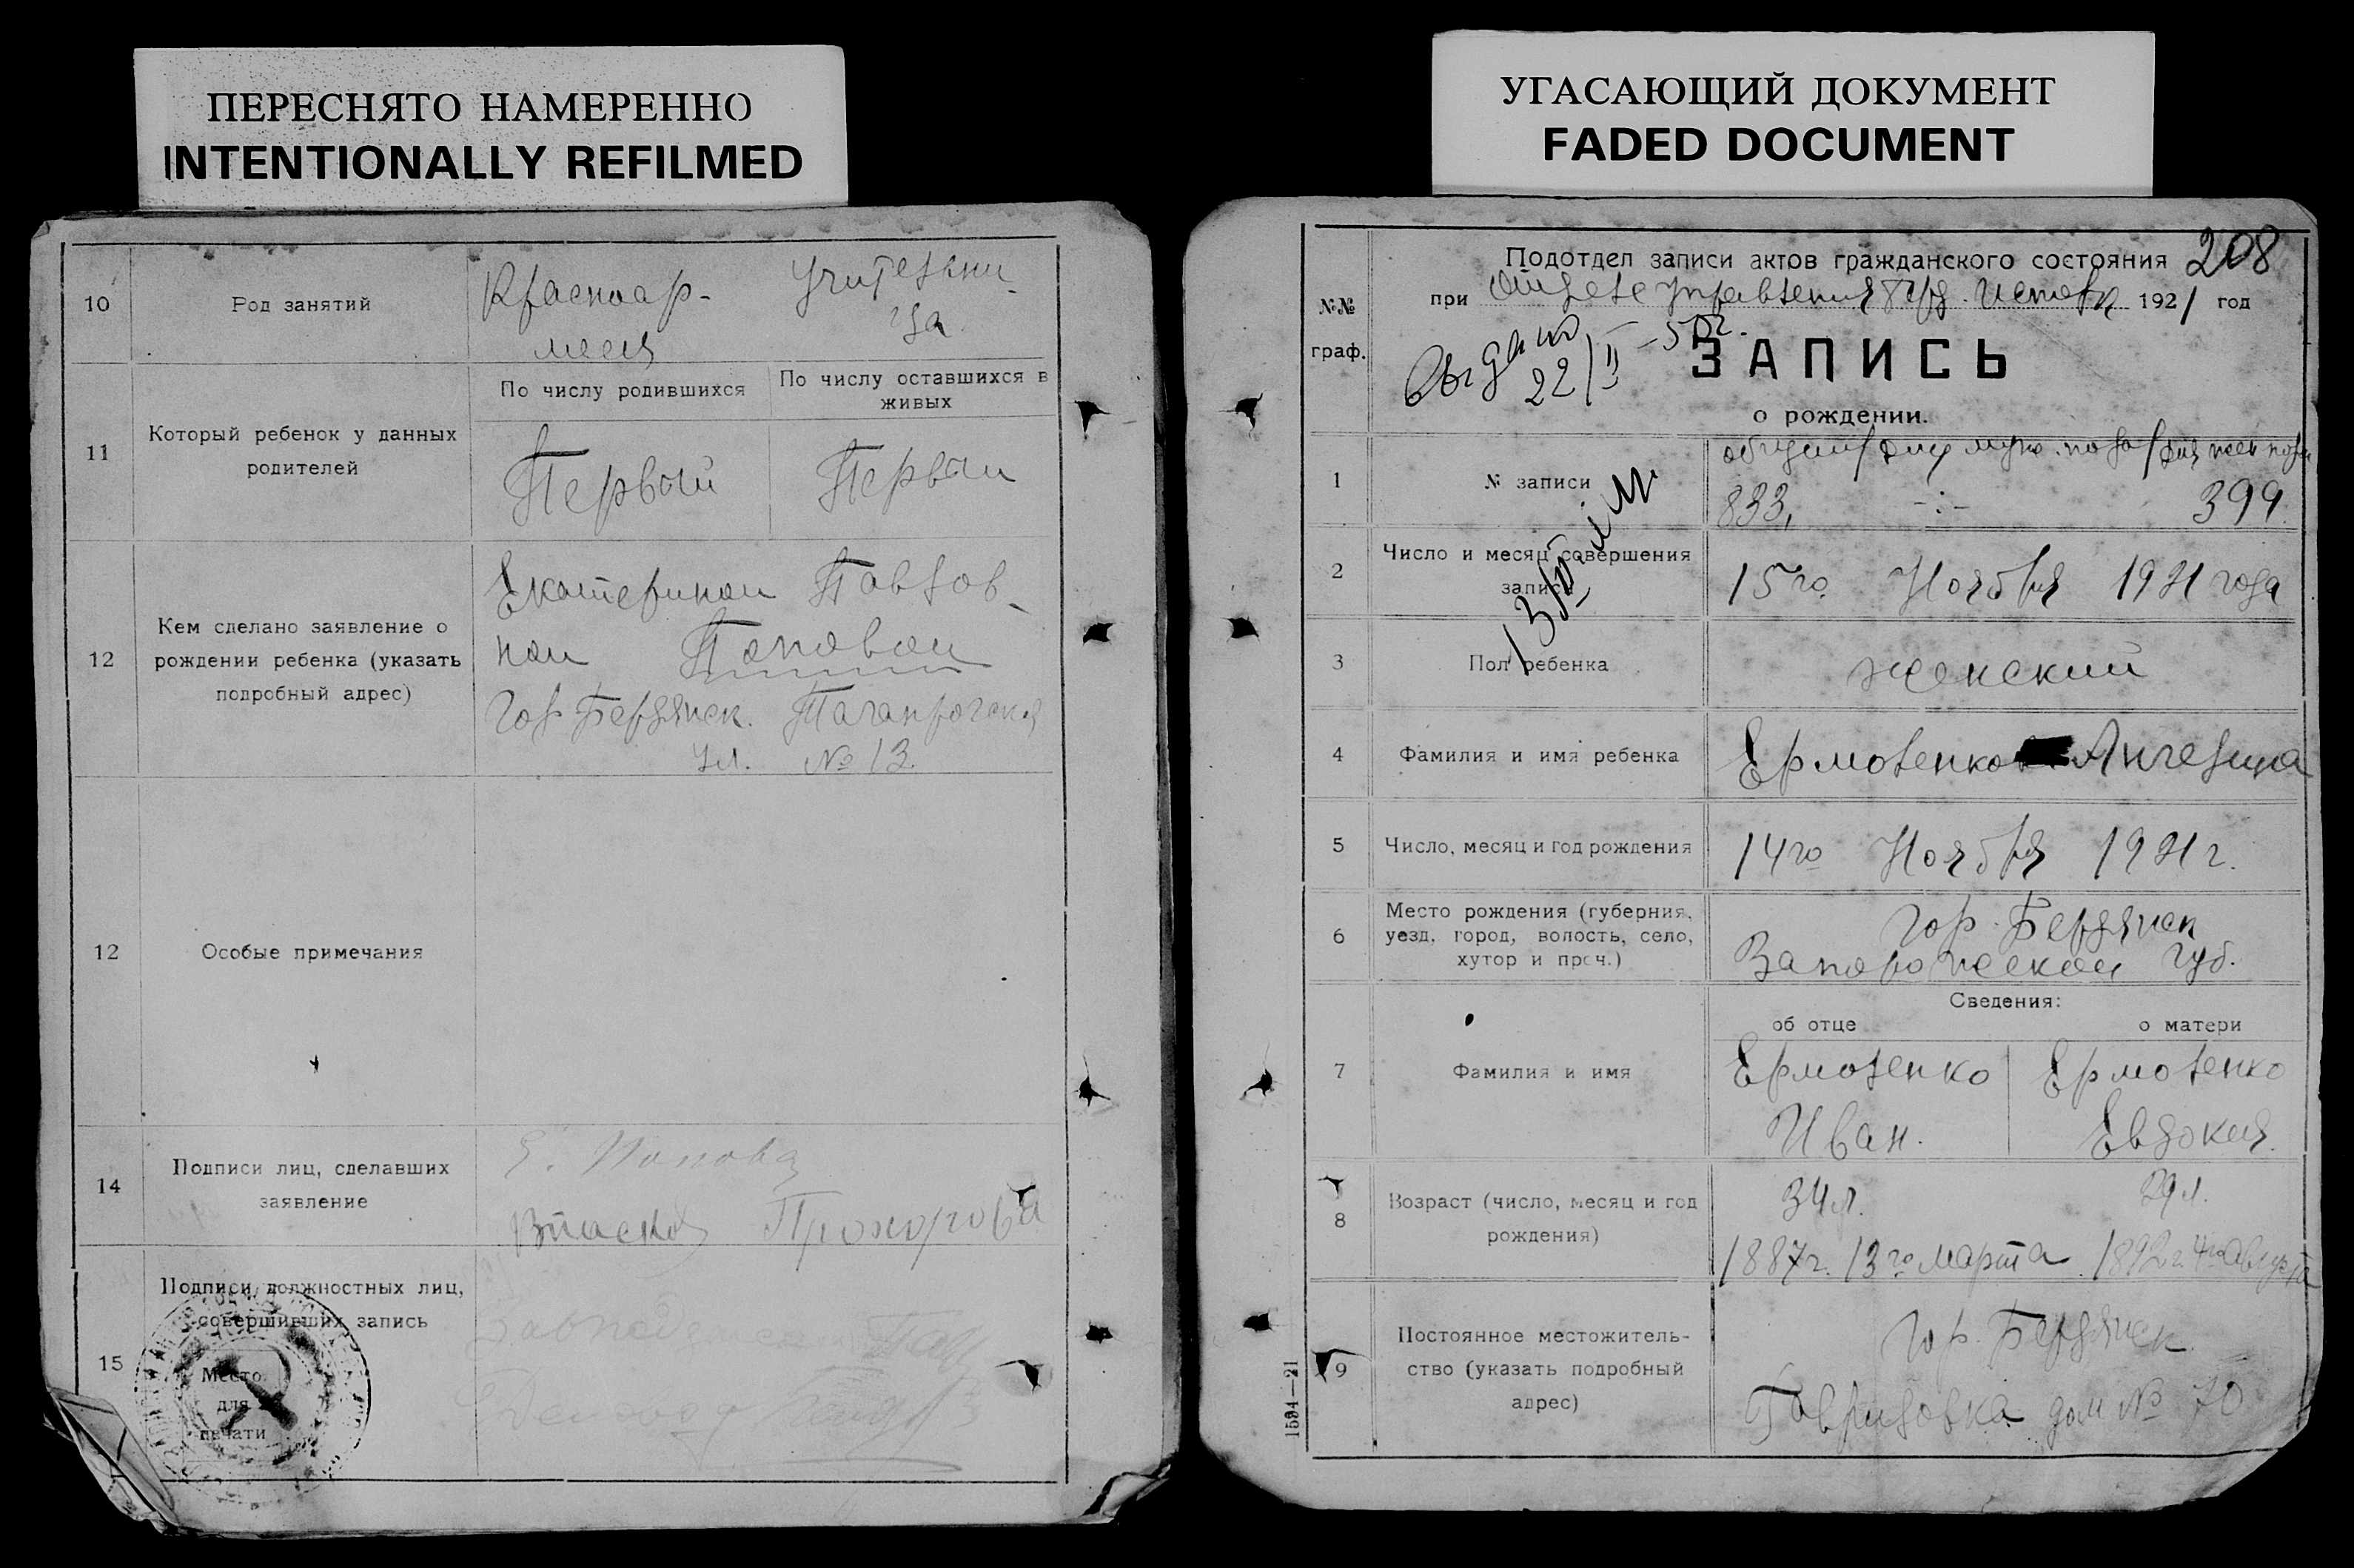 ПЕРЕСНЯТО НАМЕРЕННО
INTENTIONALLY REFILMED
10
Род занятий
Красноар-
меец
Учительни-
ца
11
Который ребенок у данных
родителей
По числу родившихся
По числу оставшихся в
живых
Первый
Первый
12
Кем сделано заявление о
рождении ребенка (указать
подробный адрес)
Екатериной Павлов-
ной Поповой
Гор. Бердянск. Таганрогская
ул. № 13.
12
Особые примечания
14
Подписи лиц, сделавших
заявление
Е. Попова
Прохорова
15
Подписи должностных лиц,
совершивших запись
Место
для
печати
УГАСАЮЩИЙ ДОКУМЕНТ
FADED DOCUMENT
208
№№
граф.
Подотдел записи актов гражданского состояния
при Отделе Управления 1921 год
Выдано
22/II - 50г.
ЗАПИСЬ
о рождении.
1
№ записи
общий/для муж. пола/для жен пола
833, -:- 399
2
Число и месяц совершения
записи
15го Ноября 1921 года
3
Пол ребенка
женский
4
Фамилия и имя ребенка
Ермоленко Ангелина
5
Число, месяц и год рождения
14го Ноября 1921 г.
6
Место рождения (губерния,
уезд, город, волость, село,
хутор и проч.)
Гор. Бердянск
Запорожской Губ.
Сведения:
об отце
о матери
7
Фамилия и имя
Ермоленко
Иван.
Ермоленко
Евдокия.
8
Возраст (число, месяц и год
рождения)
34 л.
1887г. 13го марта
29 л.
1892 г. 4го августа
9
Постоянное местожитель-
ство (указать подробный
адрес)
Гор. Бердянск
Гавриловка дом № 70
1594—21